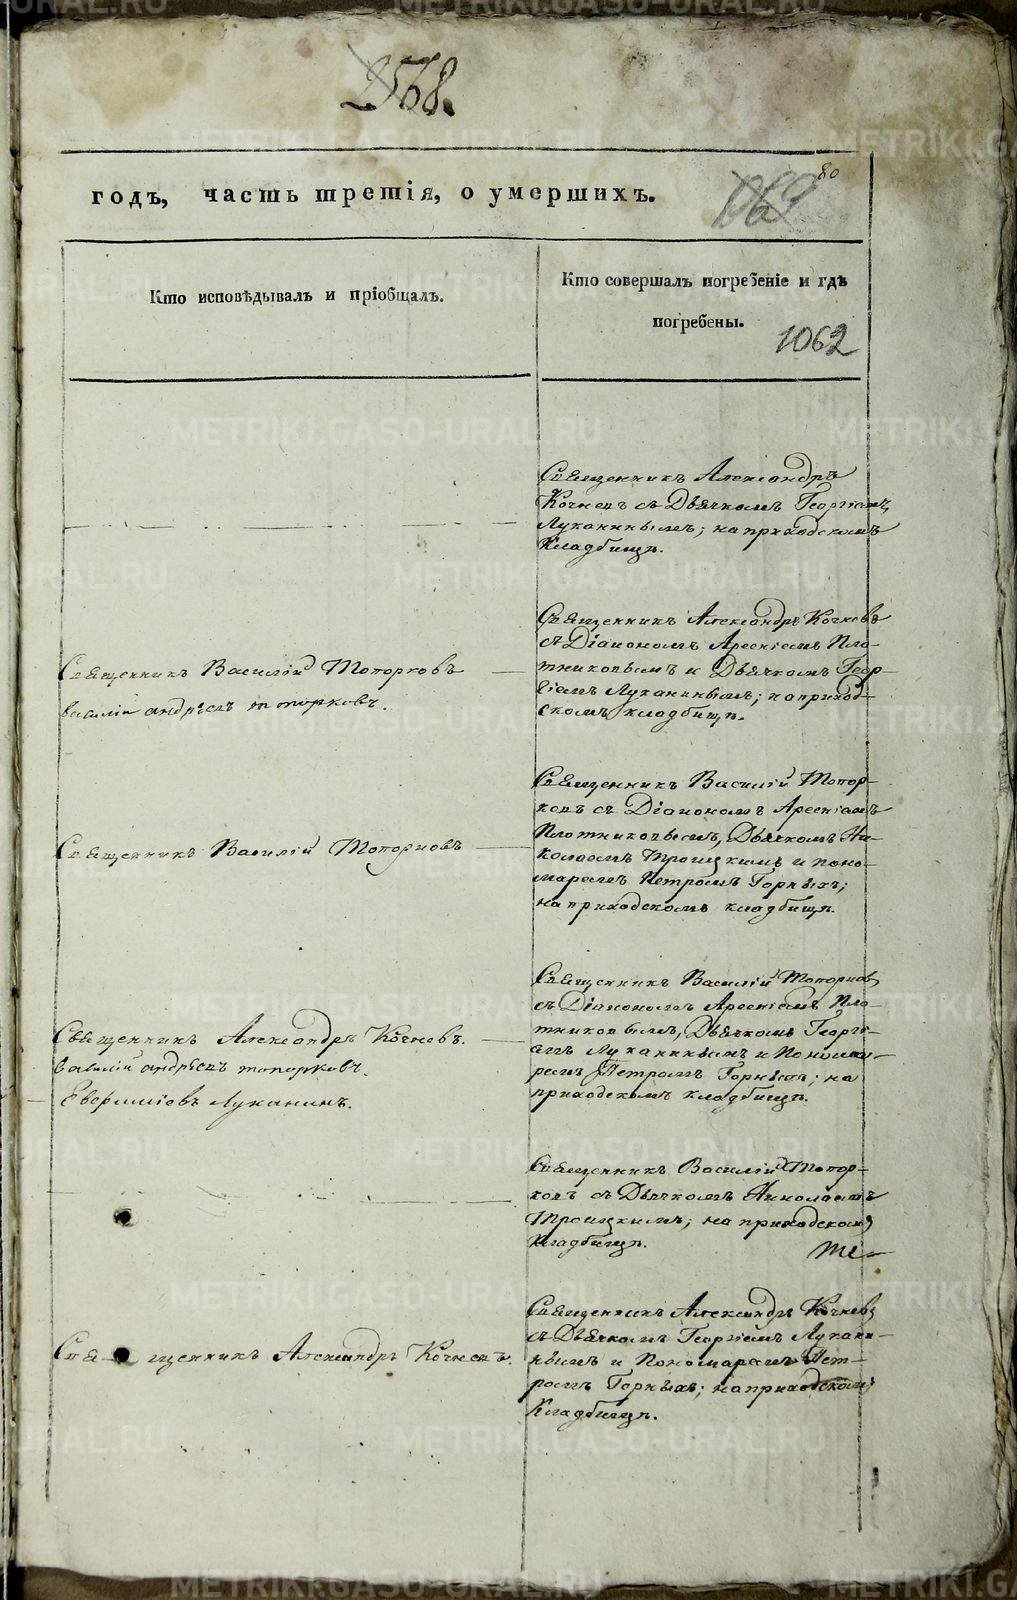 2568.
80
годъ, часть третія, о умершихъ.
1069
Кто исповѣдывалъ и пріобщалъ.
Кто совершалъ погребеніе и гдѣ
погребены.
1062
Священникъ Александръ
Кочневъ съ Дьячкомъ Георгіемъ
Луканинымъ; на приходскомъ
Кладбищѣ.
Священникъ Василій Топорковъ
Василій Андреевъ топорковъ.
Священникъ Александръ Кочневъ
съ Діакономъ Арсеніемъ Пло-
тниковымъ и Дьячкомъ Геор-
гіемъ Луканинымъ; на приход-
скомъ кладбищѣ.
Священникъ Василій Топорковъ
Священникъ Василій Топор-
ковъ съ Діакономъ Арсеніемъ
Плотниковымъ, Дьячкомъ Ни-
колаемъ Троицкимъ и поно-
маремъ Петромъ Горныхъ;
на приходскомъ кладбищѣ.
Священникъ Александръ Кочневъ.
Василій андреевъ топорковъ.
Луканинъ.
Священникъ Василій Топорковъ
съ Діакономъ Арсеніемъ Пло-
тниковымъ, Дьячкомъ Георгі-
емъ Луканинымъ и Понома-
ремъ Петромъ Горныхъ; на
приходскомъ кладбищѣ.
Священникъ Василій Топор-
ковъ съ Дьячкомъ Николаемъ
Троицкимъ; на приходскомъ
Кладбищѣ.
Священникъ Александръ Кочневъ.
Священникъ Александръ Кочневъ
съ Дьячкомъ Георгіемъ Лукани-
нымъ и Пономаремъ Пет-
ромъ Горныхъ; на приходскомъ
Кладбищѣ.
METRIKI.GASO-URAL.RU